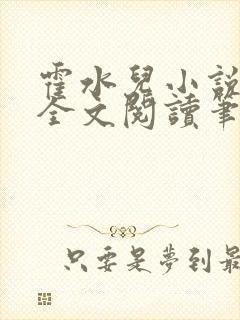 霍水兒小說
全文閱讀筆
只要是夢到最